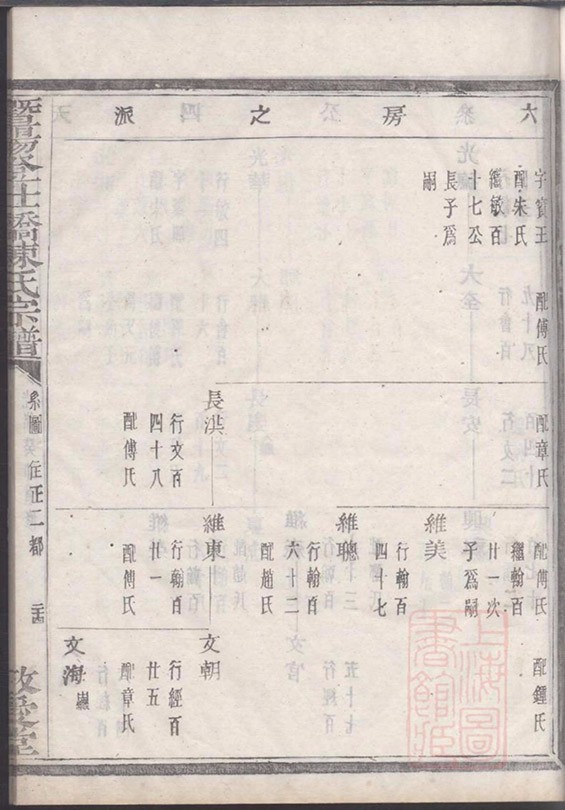 六房之派
字寶玉
配朱氏
繼敏百
十七公
長子爲
嗣
配傅氏
配章氏
長洪
行文百
四十八
配傅氏
配傅氏
繼翰百
廿一次
子爲嗣
維美
行翰百
四十七
維聰
行翰百
六十三
配趙氏
維東
行翰百
廿一
配傅氏
配鍾氏
文朝
行經百
廿五
配章氏
文海
陳氏宗譜
系圖
在正二都
上海圖書館藏